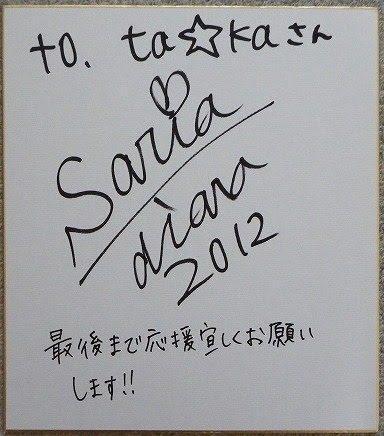 to. ta☆kaさん
Saria
diana
2012
最後まで応援宜しくお願い
します!!